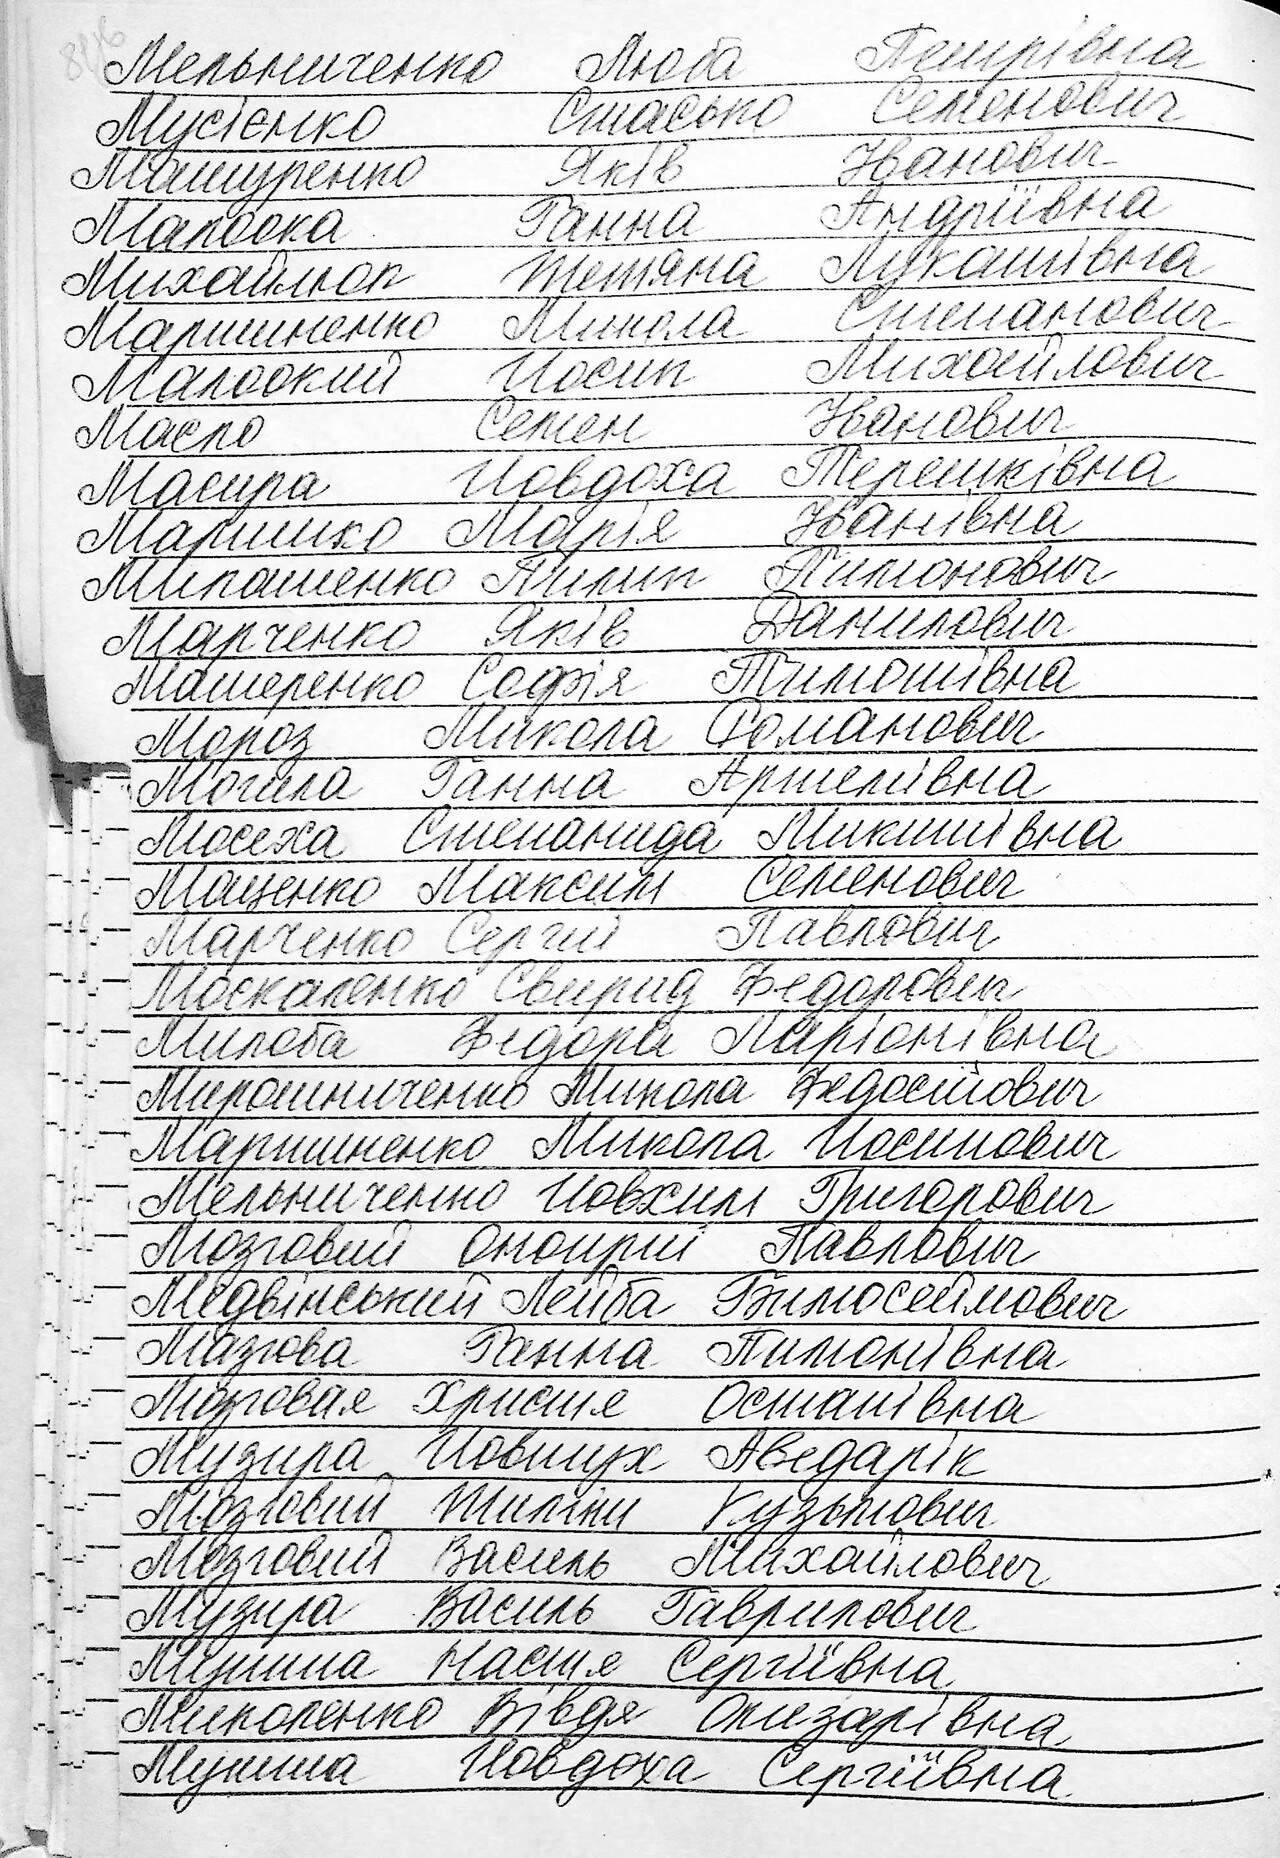 Мельниченко Люба Петрівна
Мусієнко Стасько Семенович
Машуренко Яків Іванович
Малоока Ганна Андріївна
Михайлюк Тетяна Лукашівна
Мартиненко Микола Степанович
Малоокий Йосип Михайлович
Масло Семен Іванович
Масира Йовдоха Терешківна
Маришко Марія Іванівна
Милашенко Пилип Пимонович
Марченко Яків Данилович
Машеренко Софія Тимошівна
Мороз Микола Романович
Могила Ганна Артемівна
Мосеха Степанида Микитівна
Маценко Максим Семенович
Марченко Сергій Павлович
Москаленко Свирид Федорович
Милоба Федора Ларіонівна
Мирошниченко Микола Федосійович
Мартиненко Микола Йосипович
Мельниченко Йовхим Григорович
Мозговий Онопрій Павлович
Медвінський Лейба
Мазгова Ганна Пимонівна
Мозговая Христя Остапівна
Музира Йовтух
Мозговий Кузьмович
Мозговий Василь Михайлович
Музира Василь Гаврилович
Настя Сергіївна
Миколенко Вівдя Олизарівна
Йовдоха Сергіївна